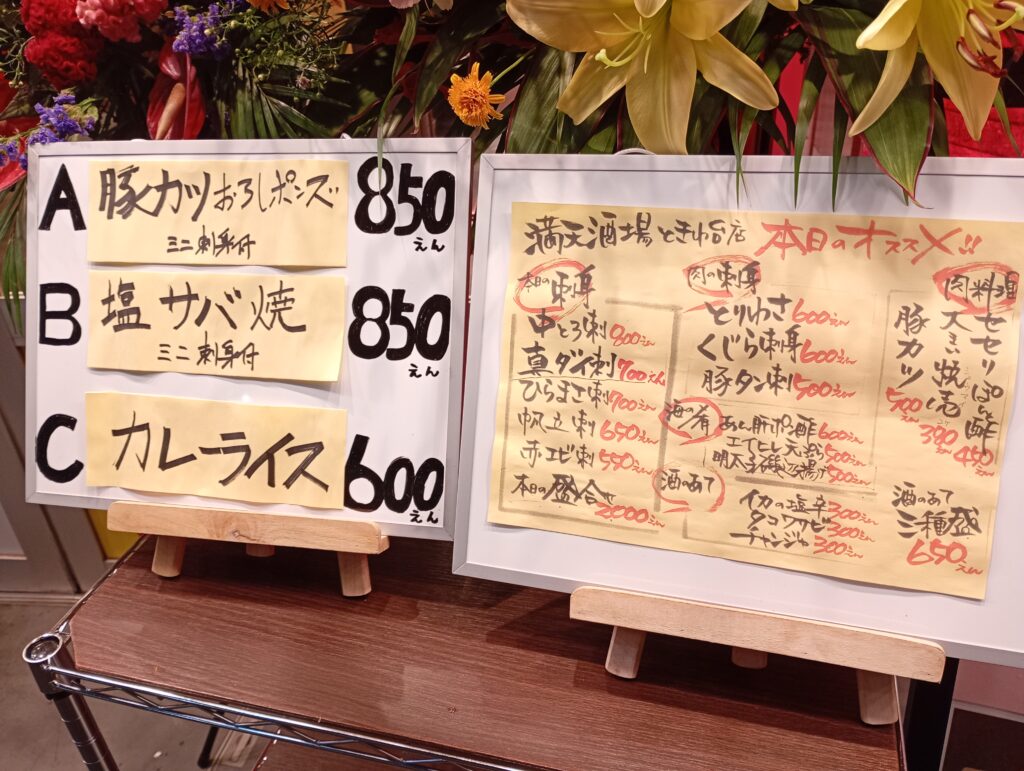 A
豚カツおろしポンズ
ミニ刺身付
850
えん
B
塩サバ焼
ミニ刺身付
850
えん
C
カレーライス
600
えん
満天酒場ときわ台店 本日のオススメ!!
本日の刺身
中とろ刺 800えん
真ダイ刺 700えん
ひらまさ刺 700えん
帆立刺 650えん
赤エビ刺 550えん
本日の盛合せ
2000えん
肉の刺身
とりわさ 600えん
くじら刺身 600えん
豚タン刺 500えん
海の肴
あん肝ポン酢 600えん
エイヒレ天ぷら 500えん
明太子 500えん
酒のあて
イカの塩辛 300えん
タコワサビ 300えん
チャンジャ 300えん
肉料理
セセリぽん酢
450えん
380えん
豚カツ
500えん
酒のあて
三種盛
650えん